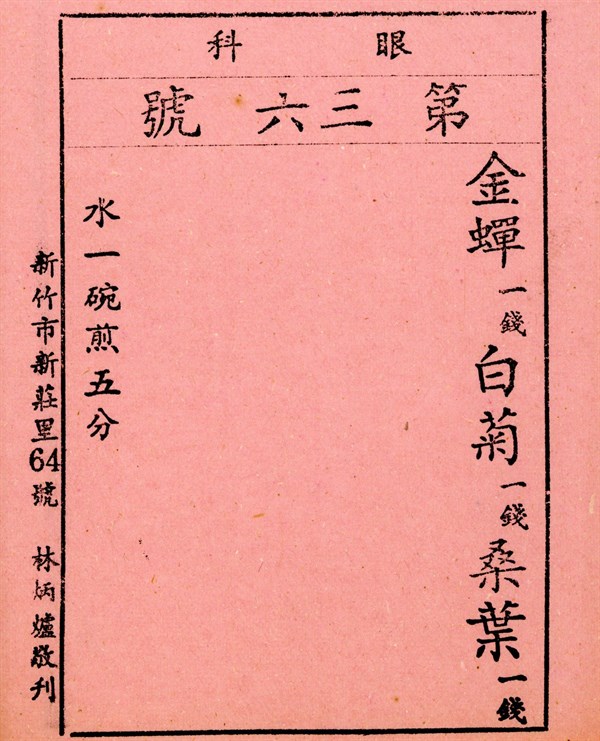 眼科
第三六號
金蟬一錢白菊一錢桑葉一錢
水一碗煎五分
新竹市新莊里64號 林炳爐敬刊